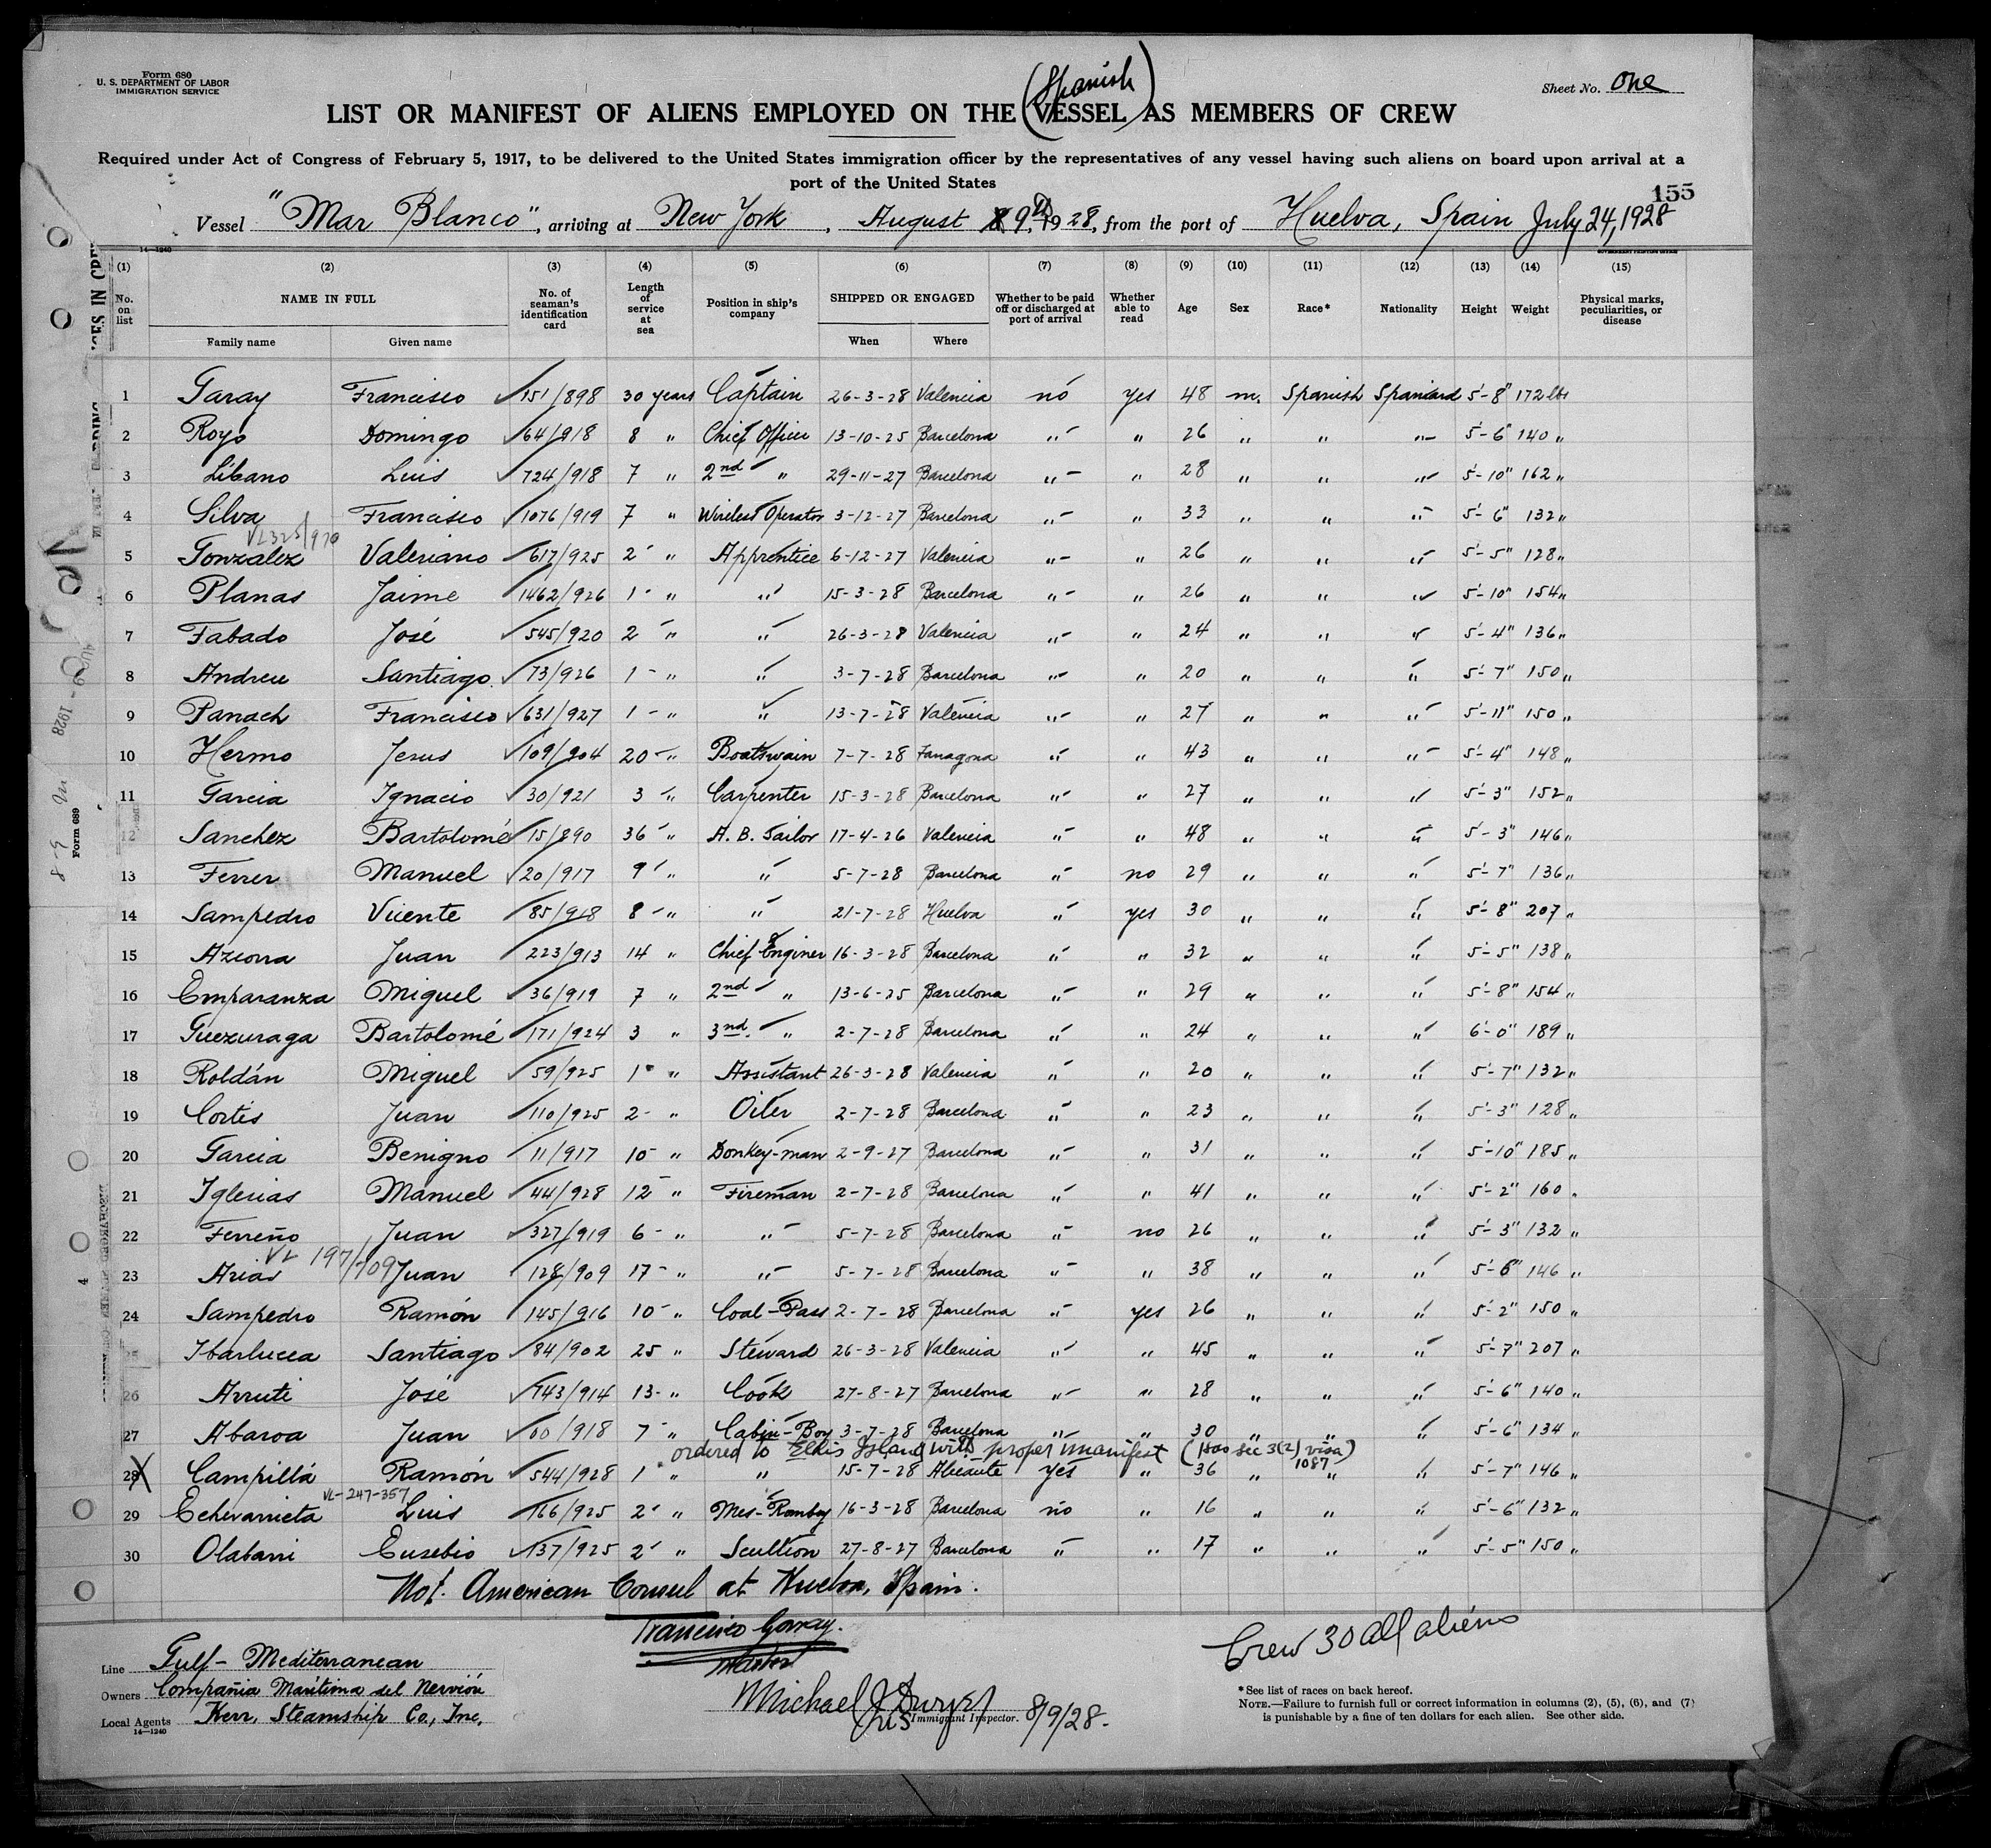 Form 680
U. S. DEPARTMENT OF LABOR
IMMIGRATION SERVICE
Sheet No. One
(Spanish)
LIST OR MANIFEST OF ALIENS EMPLOYED ON THE VESSEL AS MEMBERS OF CREW
Required under Act of Congress of February 5, 1917, to be delivered to the United States immigration officer by the representatives of any vessel having such aliens on board upon arrival at a
port of the United States
155
Vessel "Mar Blanco", arriving at New York, August 9th, 1928, from the port of Huelva, Spain July 24, 1928
14—1240
(1) (2) (3) (4) (5) (6) (7) (8) (9) (10) (11) (12) (13) (14) (15)
No. on list NAME IN FULL No. of seaman's identification card Length of service at sea Position in ship's company SHIPPED OR ENGAGED Whether to be paid off or discharged at port of arrival Whether able to read Age Sex Race* Nationality Height Weight Physical marks, peculiarities, or disease
Family name Given name When Where
1 Garay Francisco 151/898 30 years Captain 26-3-28 Valencia no yes 48 m. Spanish Spaniard 5'-8" 172 lbs
2 Royo Domingo 64/918 8 " Chief Officer 13-10-25 Barcelona " " 26 " " " 5'-6" 140 "
3 Libano Luis 724/918 7 " 2nd " 29-11-27 Barcelona " " 28 " " " 5'-10" 162 "
4 Silva Francisco 1076/919 7 " Wireless Operator 3-12-27 Barcelona " " 33 " " " 5'-6" 132 "
5 Gonzalez Valeriano 617/925 2 " Apprentice 6-12-27 Valencia " " 26 " " " 5'-5" 128 "
6 Planas Jaime 1462/926 1 " " 15-3-28 Barcelona " " 26 " " " 5'-10" 154 "
7 Fabado José 545/920 2 " " 26-3-28 Valencia " " 24 " " " 5'-4" 136 "
8 Andreu Santiago 73/926 1 " " 3-7-28 Barcelona " " 20 " " " 5'-7" 150 "
9 Panach Francisco 631/927 1 " " 13-7-28 Valencia " " 27 " " " 5'-11" 150 "
10 Hermo Jesus 109/904 20 " Boatswain 7-7-28 " " 43 " " " 5'-4" 148 "
11 Garcia Ignacio 30/921 3 " Carpenter 15-3-28 Barcelona " " 27 " " " 5'-3" 152 "
12 Sanchez Bartolomé 15/890 36 " A. B. Sailor 17-4-26 Valencia " " 48 " " " 5'-3" 146 "
13 Ferrer Manuel 20/917 9 " " 5-7-28 Barcelona " no 29 " " " 5'-7" 136 "
14 Sampedro Vicente 85/918 8 " " 21-7-28 Huelva " yes 30 " " " 5'-8" 207 "
15 Azcona Juan 223/913 14 " Chief Enginer 16-3-28 Barcelona " " 32 " " " 5'-5" 138 "
16 Emparanza Miguel 36/919 7 " 2nd " 13-6-25 Barcelona " " 29 " " " 5'-8" 154 "
17 Guezuraga Bartolomé 171/924 3 " 3nd. " 2-7-28 Barcelona " " 24 " " " 6'-0" 189 "
18 Roldán Miguel 59/925 1 " Assistant 26-3-28 Valencia " " 20 " " " 5'-7" 132 "
19 Cortis Juan 110/925 2 " Oiler 2-7-28 Barcelona " " 23 " " " 5'-3" 128 "
20 Garcia Benigno 11/917 10 " Donkey-man 2-9-27 Barcelona " " 31 " " " 5'-10" 185 "
21 Iglesias Manuel 44/928 12 " Fireman 2-7-28 Barcelona " " 41 " " " 5'-2" 160 "
22 Ferreño Juan 327/919 6 " " 5-7-28 Barcelona " no 26 " " " 5'-3" 132 "
VL 197/909
23 Arias Juan 128/909 17 " " 5-7-28 Barcelona " " 38 " " " 5'-6" 146 "
24 Sampedro Ramón 145/916 10 " Coal-Pass 2-7-28 Barcelona " yes 26 " " " 5'-2" 150 "
25 Ibarlucea Santiago 84/902 25 " Steward 26-3-28 Valencia " " 45 " " " 5'-7" 207 "
26 Arruti José 743/914 13 " Cook 27-8-27 Barcelona " " 28 " " " 5'-6" 140 "
27 Abaroa Juan /918 7 " Cabin-Boy 3-7-28 Barcelona " " 30 " " " 5'-6" 134 "
ordered to Ellis Island with proper manifest (has sec 3(2) visa) 1087
28 Campillá Ramón 544/928 1 " " 15-7-28 Alicante yes " 36 " " " 5'-7" 146 "
VL-247-357
29 Echevarrieta Luis 166/925 2 " Mes-Romboy 16-3-28 Barcelona no " 16 " " " 5'-6" 132 "
30 Olabarri Eusebio 137/925 2 " Scullion 27-8-27 Barcelona " " 17 " " " 5'-5" 150 "
Not. American Consul at Huelva, Spain.
Francisco Garay.
Master
Crew 30 all aliens
Line Gulf-Mediterranean
Owners Compañia Maritima del Nervión
Local Agents Kerr, Steamship Co., Inc,
14—1240
Michael J Dwyer
Immigrant Inspector. 8/9/28.
*See list of races on back hereof.
NOTE.—Failure to furnish full or correct information in columns (2), (5), (6), and (7)
is punishable by a fine of ten dollars for each alien. See other side.
Form 689